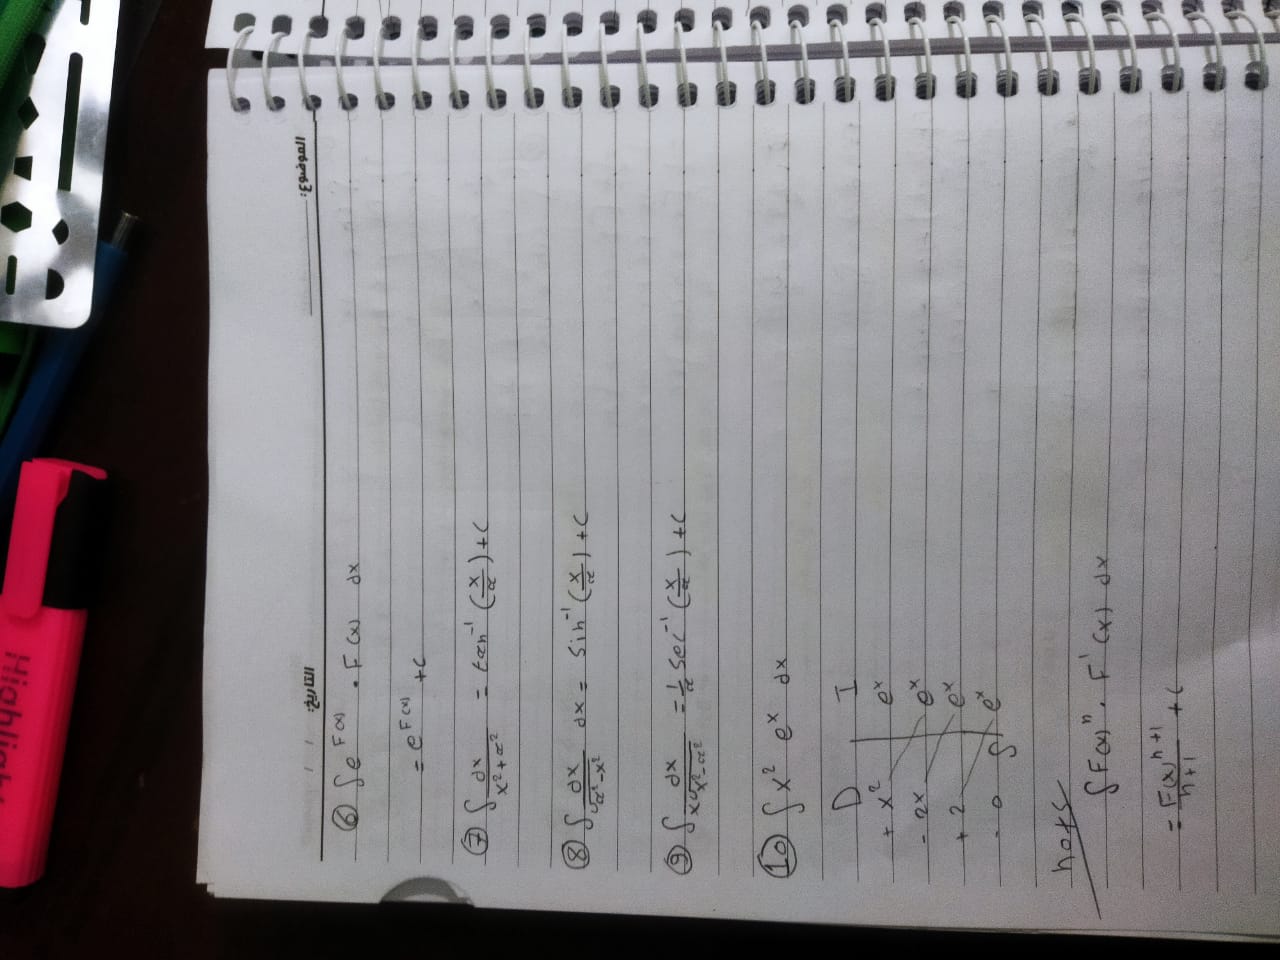 Highligh
الموضوع: التاريخ: / /
⑥ ∫e^F(x) . F(x) dx
= e^F(x) +c
⑦ ∫ dx/(x²+a²) = tan⁻¹ (x/a)+c
⑧ ∫ dx/√(a²-x²) dx = Sin⁻¹ (x/a) +c
⑨ ∫ dx/(x√(x²-a²)) = 1/a Sec⁻¹ (x/a) +c
⑩ ∫ x² e^x dx
D I
+ x² e^x
- 2x e^x
+ 2 e^x
- 0 ∫ e^x
nots
∫ F(x)^n . F'(x) dx
= F(x)^n+1/n+1 + c